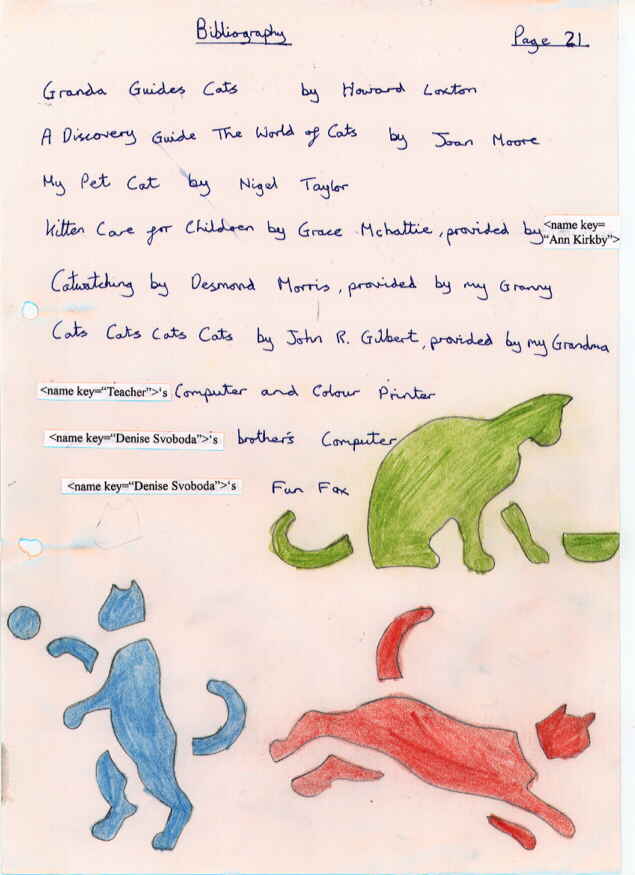 Bibliography
Page 21
Granda Guides Cats by Howard Loxton
A Discovery Guide The World of Cats by Joan Moore
My Pet Cat by Nigel Taylor
Kitten Care for Children by Grace Mchattie, provided by <name key=
“Ann Kirkby”>
Catwatching by Desmond Morris, provided by my Granny
Cats Cats Cats Cats by John R. Gilbert, provided by my Grandma
<name key=“Teacher”>‘s Computer and Colour Printer
<name key=“Denise Svoboda”>‘s brother's Computer
<name key=“Denise Svoboda”>‘s Fun Fax